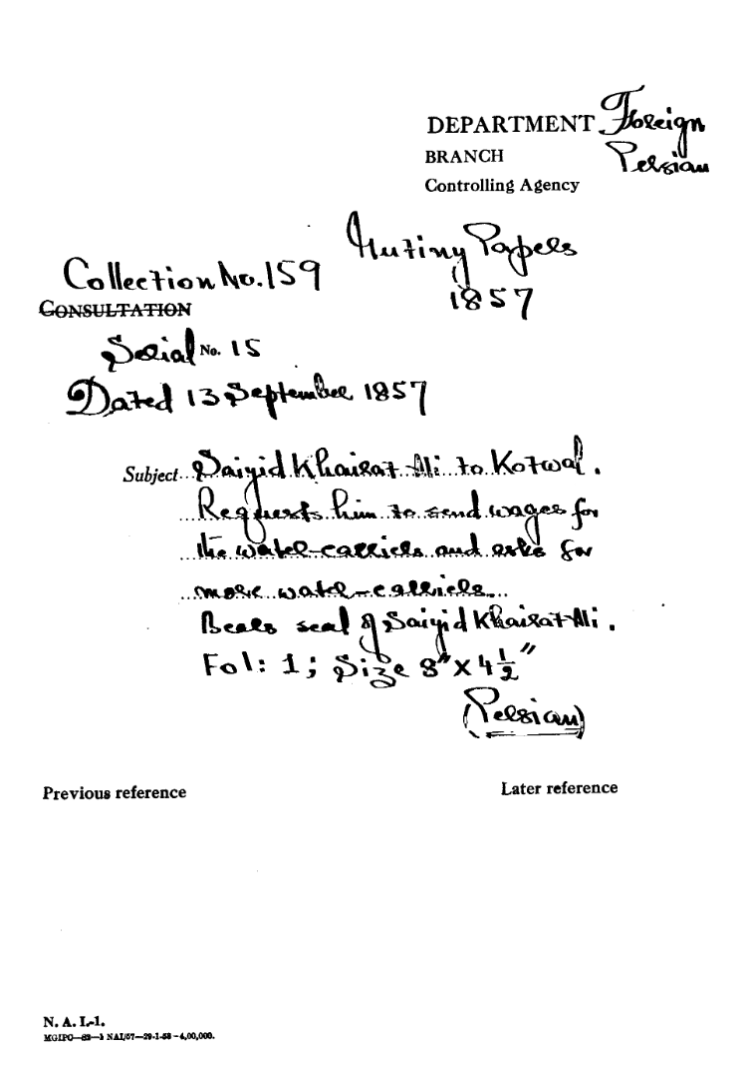 DEPARTMENT Foreign
BRANCH Persian
Controlling Agency
Mutiny Papers
1857
Collection No. 159
CONSULTATION
Serial No. 15
Dated 13 September 1857
Subject... Saiyid Khairat Ali to Kotwal.
Requests him to send wages for
the water-carriers and asks for
more water-carriers.
Bears seal of Saiyid Khairat Ali.
Fol: 1; Size 8" x 4½"
(Persian)
Previous reference
Later reference
N. A. I.-1.
MGIPC—83—3 NAI/57—29-1-58—4,00,000.